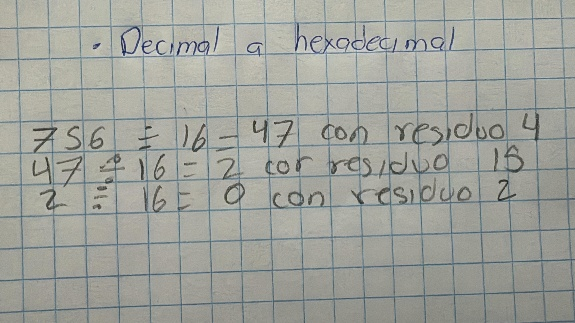 • Decimal a hexadecimal
756 ÷ 16 = 47 con residuo 4
47 ÷ 16 = 2 con residuo 15
2 ÷ 16 = 0 con residuo 2